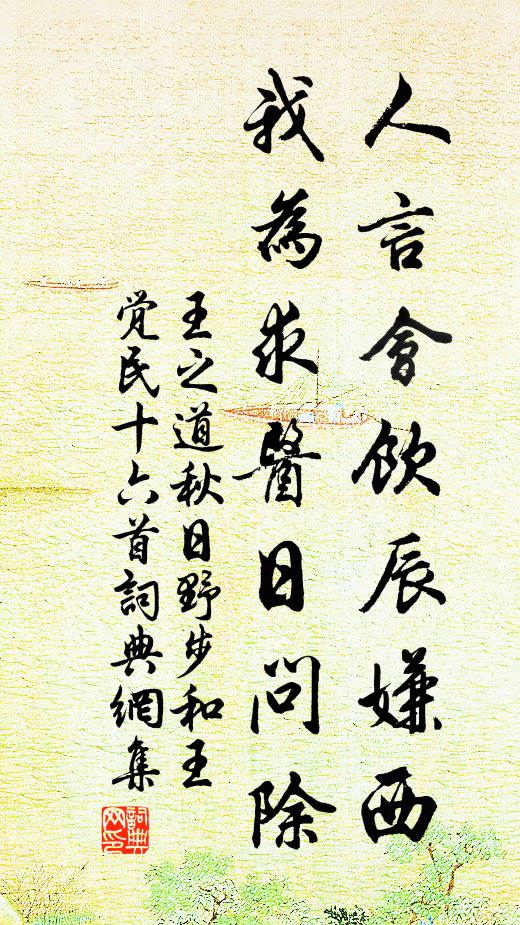 人言會飲辰嫌西
我為求醫日問除
王之道秋日野步和王
覚民十六首詞典網集
詞典網印